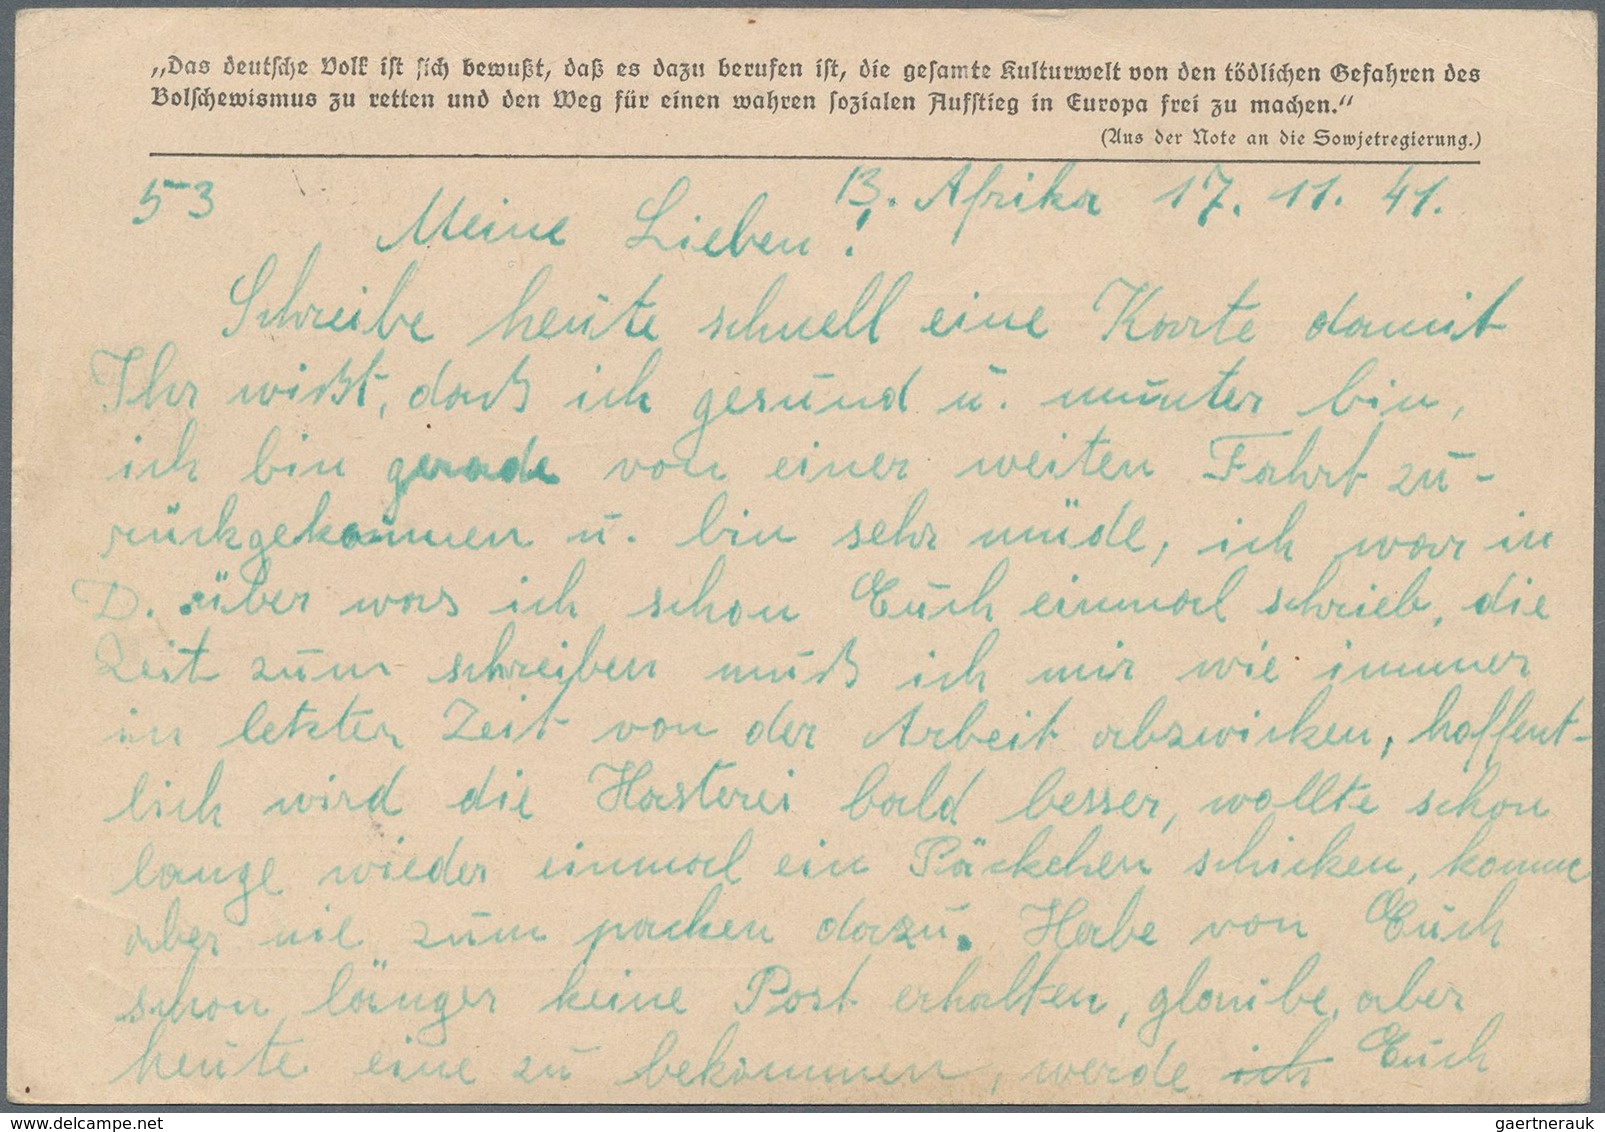 „Das deutsche Volk ist sich bewußt, daß es dazu berufen ist, die gesamte Kulturwelt von den tödlichen Gefahren des
Bolschewismus zu retten und den Weg für einen wahren sozialen Aufstieg in Europa frei zu machen.“
(Aus der Note an die Sowjetregierung.)
53 Afrika 17. 11. 41.
Meine Lieben!
Schreibe heute schnell eine Karte damit
Ihr wißt, daß ich gesund u. munter bin,
ich bin gerade von einer weiten Fahrt zu-
rückgekommen u. bin sehr müde, ich war in
D. über was ich schon Euch einmal schrieb, die
Zeit zum schreiben muß ich mir wie immer
in letzter Zeit von der Arbeit abzwicken, hoffent-
lich wird die Hasterei bald besser, wollte schon
lange wieder einmal ein Päckchen schicken, komme
aber nie zum packen dazu. Habe von Euch
schon länger keine Post erhalten, glaube, aber
heute eine zu bekommen, werde ich Euch
www.delcampe.net
gaertnerauk